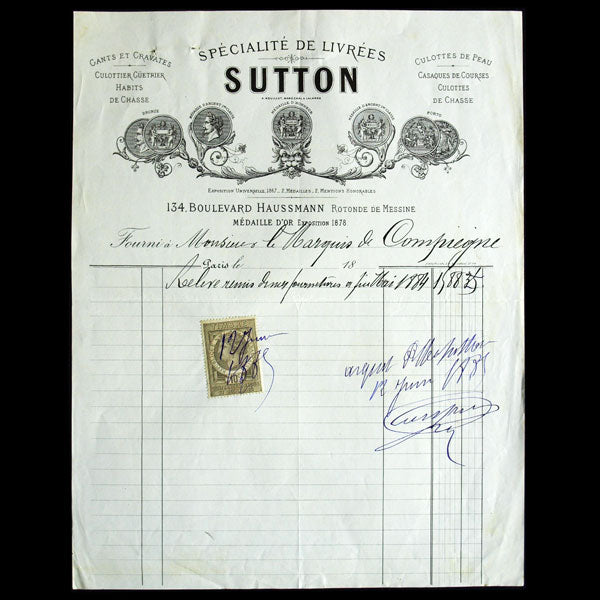 SPÉCIALITÉ DE LIVRÉES
SUTTON
GANTS ET CRAVATES
CULOTTIER GUÊTRIER
HABITS
DE CHASSE
CULOTTES DE PEAU
CASAQUES DE COURSES
CULOTTES
DE CHASSE
BRONZE
MÉDAILLE D'HONNEUR
PORTO
EXPOSITION UNIVERSELLE, 1867_2, MÉDAILLES, 2, MENTIONS HONORABLES
134, BOULEVARD HAUSSMANN ROTONDE DE MESSINE
MÉDAILLE D'OR EXPOSITION 1878.
Fourni à Monsieur le Marquis de Compiegne
Paris le 18
Relevé remis de ses fournitures Mai 1884 1,588 25
12 Juin
1885
12 Juin 1885